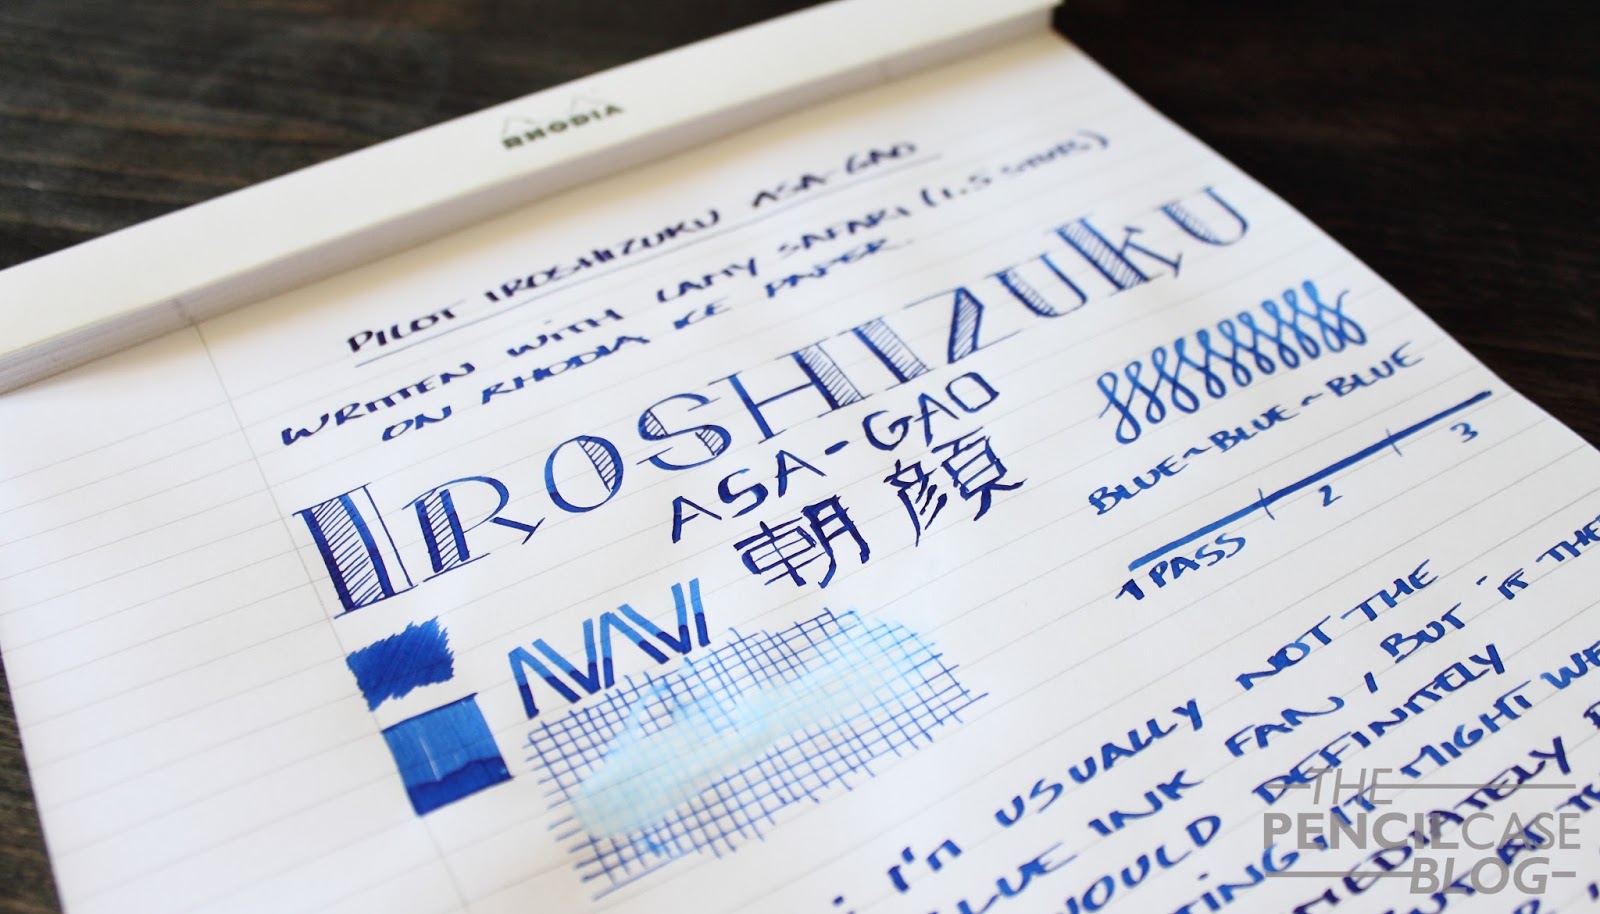 RHODIA
PILOT IROSHIZUKU ASA-GAO
WRITTEN WITH LAMY SAFARI (1.5 STUB)
ON RHODIA ICE PAPER.
IROSHIZUKU
ASA-GAO
朝顔
BLUE~BLUE~BLUE
1 PASS 2 3
I'M USUALLY NOT THE
BLUE INK FAN, BUT
WOULD DEFINITELY
IT MIGHT
THE
PENCILCASE
BLOG